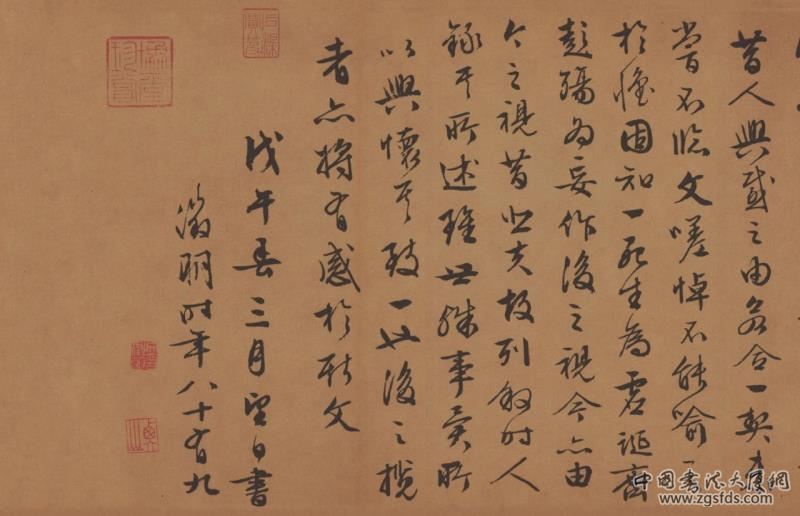 昔人興感之由若合一契未
嘗不臨文嗟悼不能喻之
於懷固知一死生為虛誕齊
彭殤為妄作後之視今亦由
今之視昔悲夫故列敘時人
錄其所述雖世殊事異所
以興懷其致一也後之攬
者亦將有感於斯文
戊午春三月望日書
徵明時年八十有九
中国书法大厦网
www.zgsfds.com